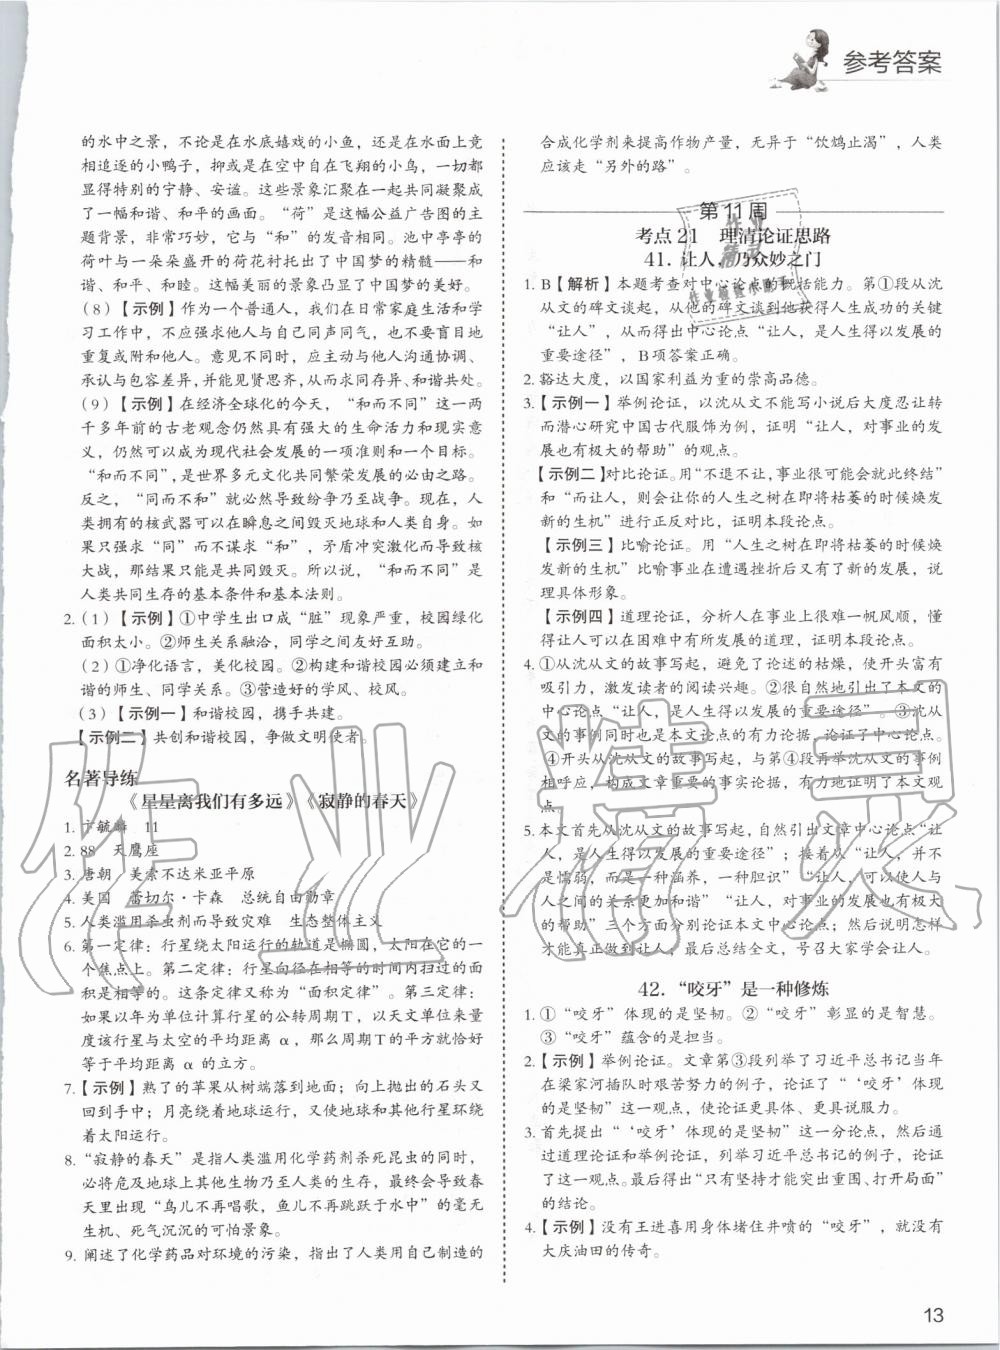 参考答案
的水中之景，不论是在水底嬉戏的小鱼，还是在水面上竞
相追逐的小鸭子，抑或是在空中自在飞翔的小鸟，一切都
显得特别的宁静、安谧。这些景象汇聚在一起共同凝聚成
了一幅和谐、和平的画面。“荷”是这幅公益广告图的主
题背景，非常巧妙，它与“和”的发音相同。池中亭亭的
荷叶与一朵朵盛开的荷花衬托出了中国梦的精髓——和
谐、和平、和睦。这幅美丽的景象预示着中国梦的美好。
（8）【示例】作为一个普通人，我们在日常家庭生活和学
习工作中，不应强求他人与自己同声同气，也不要盲目地
重复或附和他人。意见不同时，应主动与他人沟通协调、
承认与包容差异，并能见贤思齐，从而求同存异、和谐共处。
（9）【示例】在经济全球化的今天，“和而不同”这一两
千多年前的古老观念仍然具有强大的生命活力和现实意
义，仍然可以成为现代社会发展的一项准则和一个目标。
“和而不同”，是世界多元文化共同繁荣发展的必由之路。
反之，“同而不和”就必然导致纷争乃至战争。现在，人
类拥有的核武器可以在瞬息之间毁灭地球和人类自身。如
果只强求“同”而不谋求“和”，矛盾冲突激化而导致核
大战，那结果只能是共同毁灭。所以说，“和而不同”是
人类共同生存的基本条件和基本法则。
2.（1）【示例】①中学生出口成“脏”现象严重，校园绿化
面积太小。②师生关系融洽，同学之间友好互助。
（2）①净化语言，美化校园。②构建和谐校园必须建立和
谐的师生、同学关系。③营造好的学风、校风。
（3）【示例一】和谐校园，携手共建。
【示例二】共创和谐校园，争做文明使者。
名著导练
《星星离我们有多远》《寂静的春天》
1. 卞毓麟 11
2. 88 天鹰座
3. 唐朝 美索不达米亚平原
4. 美国 蕾切尔·卡森 总统自由勋章
5. 人类滥用杀虫剂而导致灾难 生态整体主义
6. 第一定律：行星绕太阳运行的轨道是椭圆，太阳在它的一
个焦点上。第二定律：行星向径在相等的时间内扫过的面
积是相等的。这条定律又称为“面积定律”。第三定律：
如果以年为单位计算行星的公转周期T，以天文单位来量
度该行星与太空的平均距离 α，那么周期T的平方就恰好
等于平均距离 α 的立方。
7.【示例】熟了的苹果从树端落到地面；向上抛出的石头又
回到手中；月亮绕着地球运行，又使地球和其他行星环绕
着太阳运行。
8. “寂静的春天”是指人类滥用化学药剂杀死昆虫的同时，
必将危及地球上其他生物乃至人类的生存，最终会导致春
天里出现“鸟儿不再唱歌，鱼儿不再跳跃于水中”的毫无
生机、死气沉沉的可怕景象。
9. 阐述了化学药品对环境的污染，指出了人类用自己制造的
合成化学剂来提高作物产量，无异于“饮鸩止渴”，人类
应该走“另外的路”。
第 11 周
考点 21 理清论证思路
41. 让人，乃众妙之门
1. B【解析】本题考查对中心论点的概括能力。第①段从沈
从文的碑文谈起，从他的碑文谈到他获得人生成功的关键
“让人”，从而得出中心论点“让人，是人生得以发展的
重要途径”，B项答案正确。
2. 豁达大度，以国家利益为重的崇高品德。
3.【示例一】举例论证，以沈从文不能写小说后大度忍让转
而潜心研究中国古代服饰为例，证明“让人，对事业的发
展也有极大的帮助”的观点。
【示例二】对比论证。用“不退不让，事业很可能会就此终结”
和“而让人，则会让你的人生之树在即将枯萎的时候焕发
新的生机”进行正反对比，证明本段论点。
【示例三】比喻论证。用“人生之树在即将枯萎的时候焕
发新的生机”比喻事业在遭遇挫折后又有了新的发展，说
理具体形象。
【示例四】道理论证，分析人在事业上很难一帆风顺，懂
得让人可以在困难中有所发展的道理，证明本段论点。
4. ①从沈从文的故事写起，避免了论述的枯燥，使开头富有
吸引力，激发读者的阅读兴趣。②很自然地引出了本文的
中心论点“让人，是人生得以发展的重要途径”。③沈从
文的事例同时也是本文论点的有力论据，论证了中心论点。
④开头从沈从文的故事写起，与第④段再举沈从文的事例
相呼应，构成文章重要的事实论据，有力地证明了本文观
点。
5. 本文首先从沈从文的故事写起，自然引出文章中心论点“让
人，是人生得以发展的重要途径”；接着从“让人，并不
是懦弱，而是一种涵养，一种胆识”“让人，可以使人与
人之间的关系更加和谐”“让人，对事业的发展也有极大
的帮助”三个方面分别论证本文中心论点；然后说明怎样
才能真正做到让人，最后总结全文，号召大家学会让人。
42. “咬牙”是一种修炼
1. ①“咬牙”体现的是坚韧。②“咬牙”彰显的是智慧。
③“咬牙”蕴含的是担当。
2.【示例】举例论证。文章第③段列举了习近平总书记当年
在梁家河插队时艰苦努力的例子，论证了“‘咬牙’体现
的是坚韧”这一观点，使论证更具体、更具说服力。
3. 首先提出“‘咬牙’体现的是坚韧”这一分论点，然后通
过道理论证和举例论证，列举习近平总书记的例子，论证
了这一观点。最后得出“只有坚持才能突出重围、打开局面”
的结论。
4.【示例】没有王进喜用身体堵住井喷的“咬牙”，就没有
大庆油田的传奇。
13
作业精灵
作业
精灵